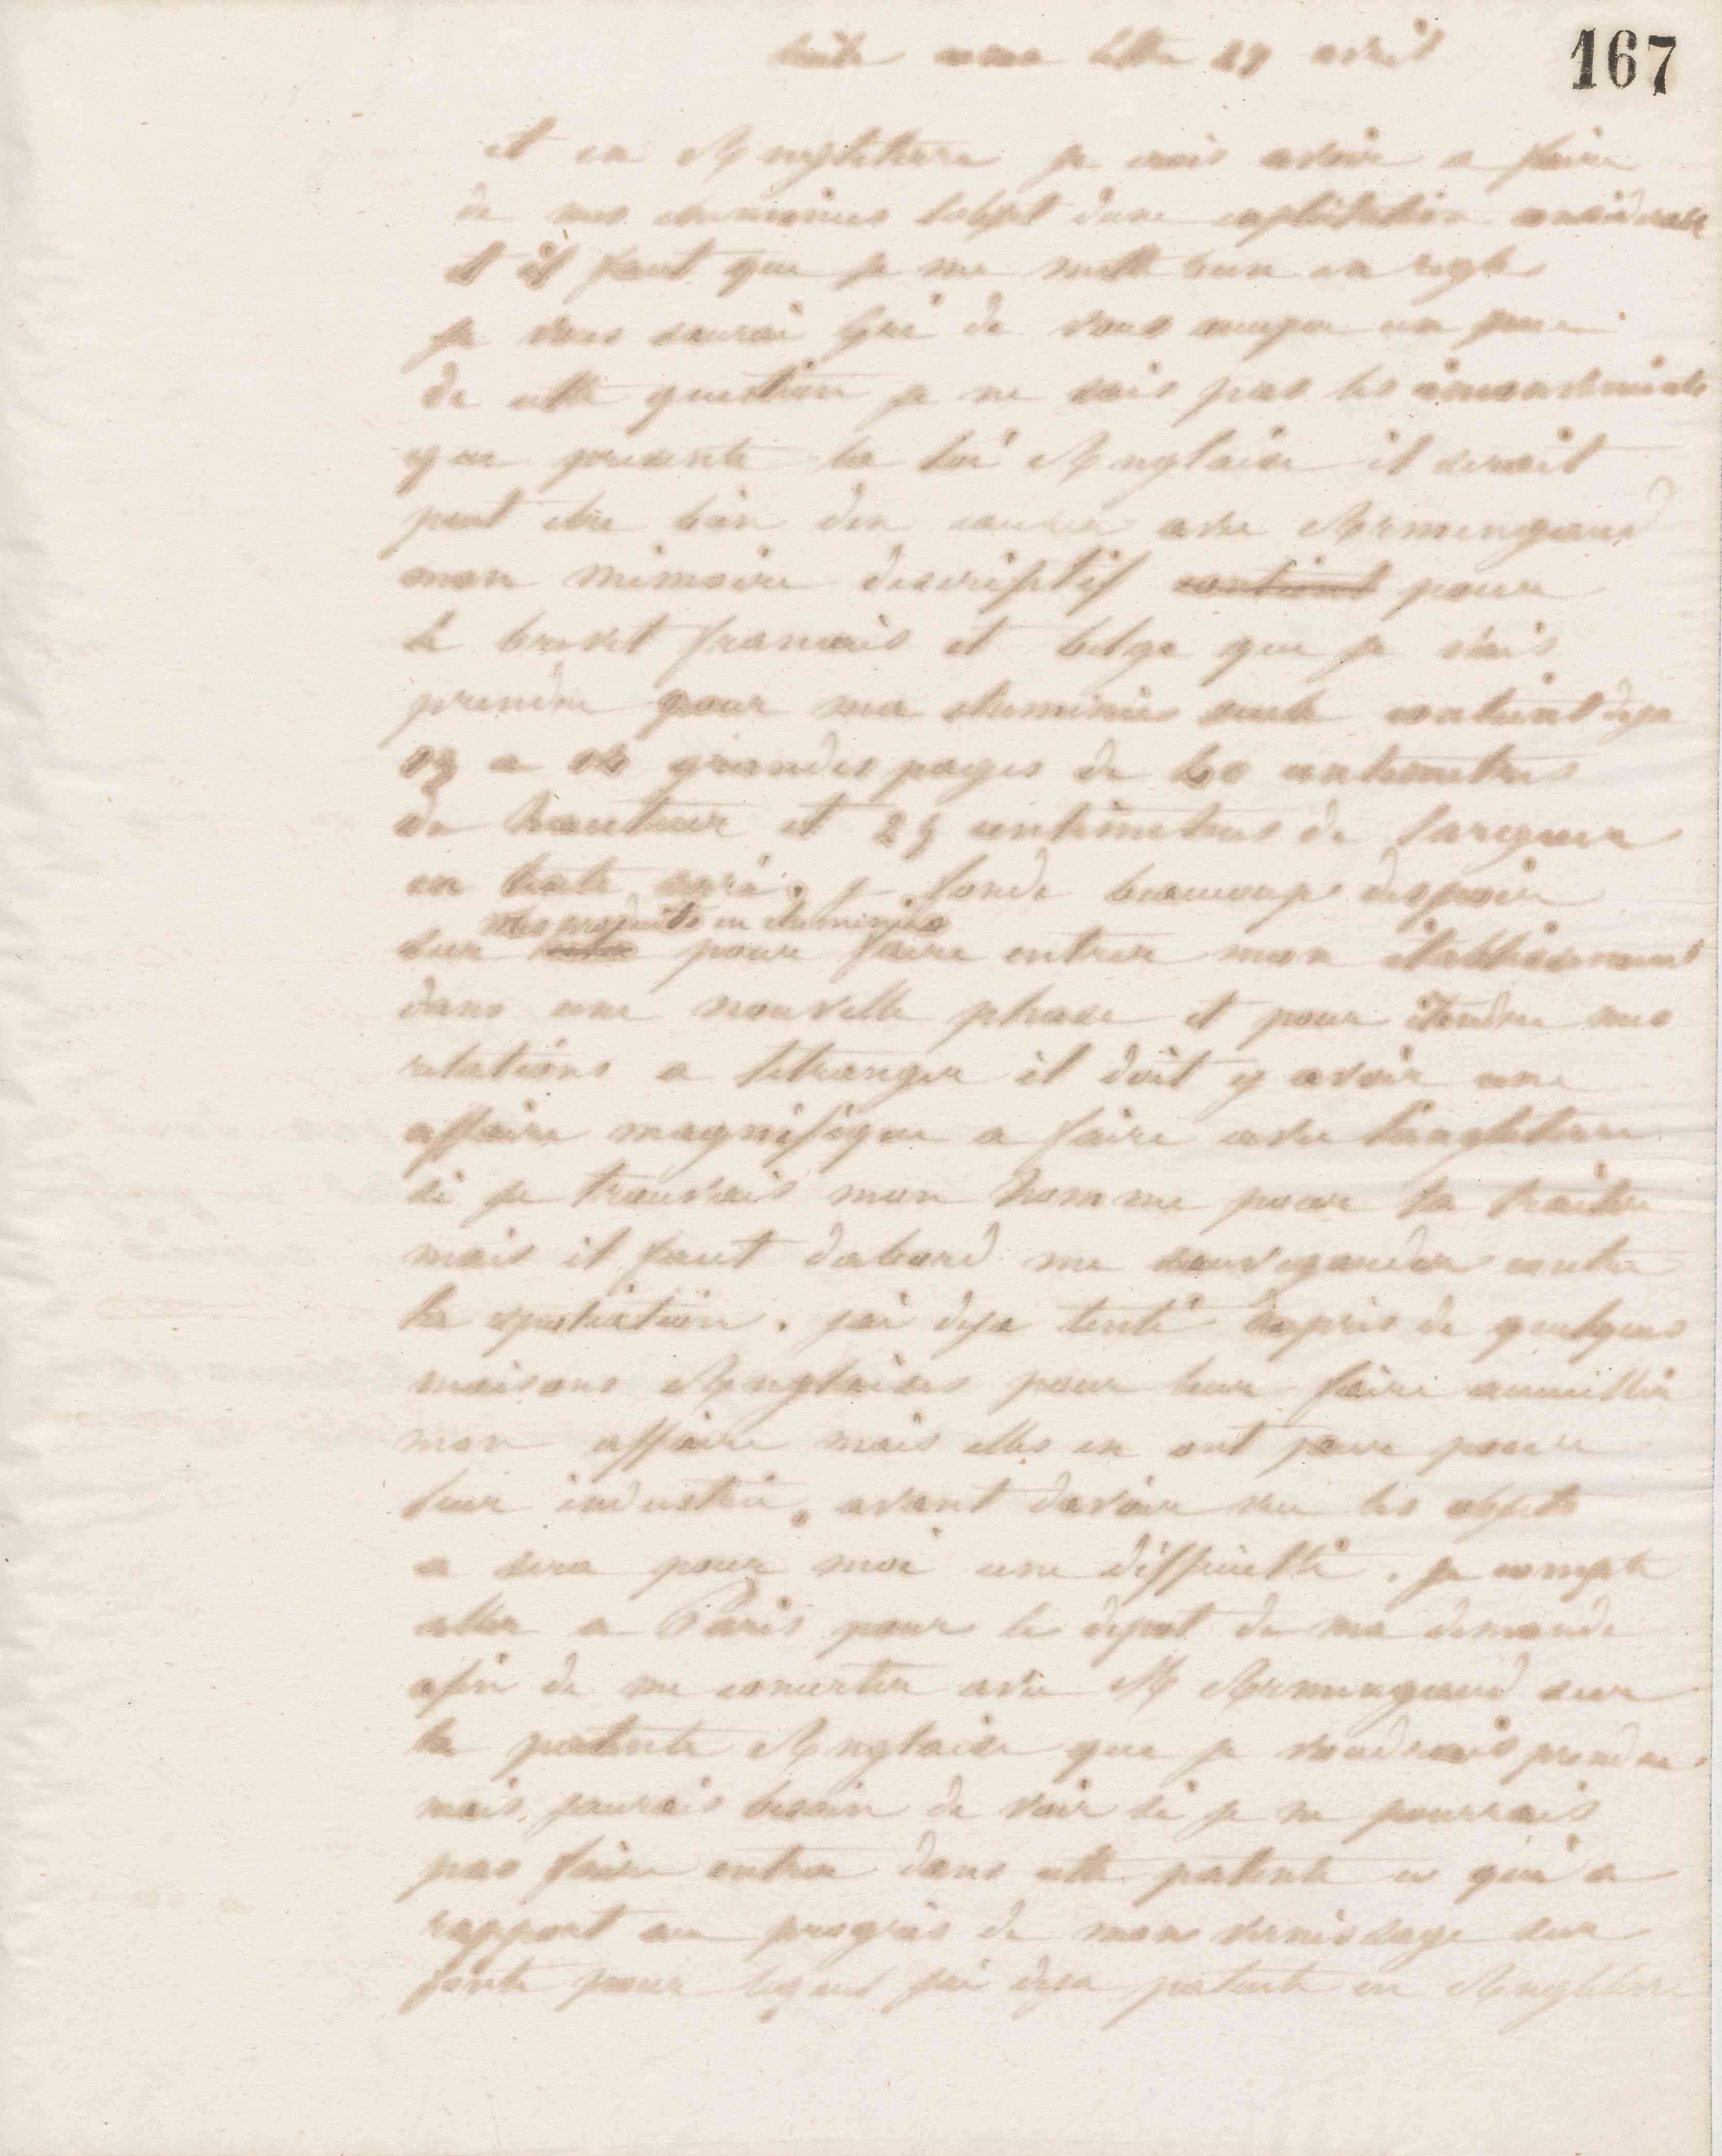 suite a ma lettre 27 avril
167
et en Angleterre je vais avoir a faire
de mes cheminées lobjet dune exploitation considerable
et il faut que je me mette bien en regle
je vous saurai gré de vous occuper un peu
de cette question je ne sais pas les inconvenients
que presente la loi Anglaise il serait
peut etre bon den causer avec Armengaud
mon mémoire descriptif contient pour
le brevet francais et belge que je vais
prendre pour ma cheminée seule contient deja
a grandes pages de 40 centimetres
de hauteur et 25 centimetres de largeur
en texte serré. je fonde beaucoup despoir
mes produits en cheminées
sur pour faire entrer mon établissement
dans une nouvelle phase et pour étendre mes
relations a letranger il doit y avoir une
affaire magnifique a faire avec langleterre
si je trouvais mon homme pour la traiter
mais il faut dabord me sauvegarder contre
la spoliation. jai deja tenté aupres de quelques
maisons Anglaises pour leur faire accueillir
mon affaire mais elles en ont peur pour
leur industrie. avant davoir vu les objets
ce sera pour moi une difficulté. je compte
aller a Paris pour le depot de ma demande
afin de me concerter avec M Armengaud sur
la patente Anglaise que je voudrais prendre
mais jaurais besoin de voir si je ne pourrais
pas faire entrer dans cette patente ce qui a
rapport au progrès de mon vernissage sur
fonte pour lequel jai deja patente en Angleterre